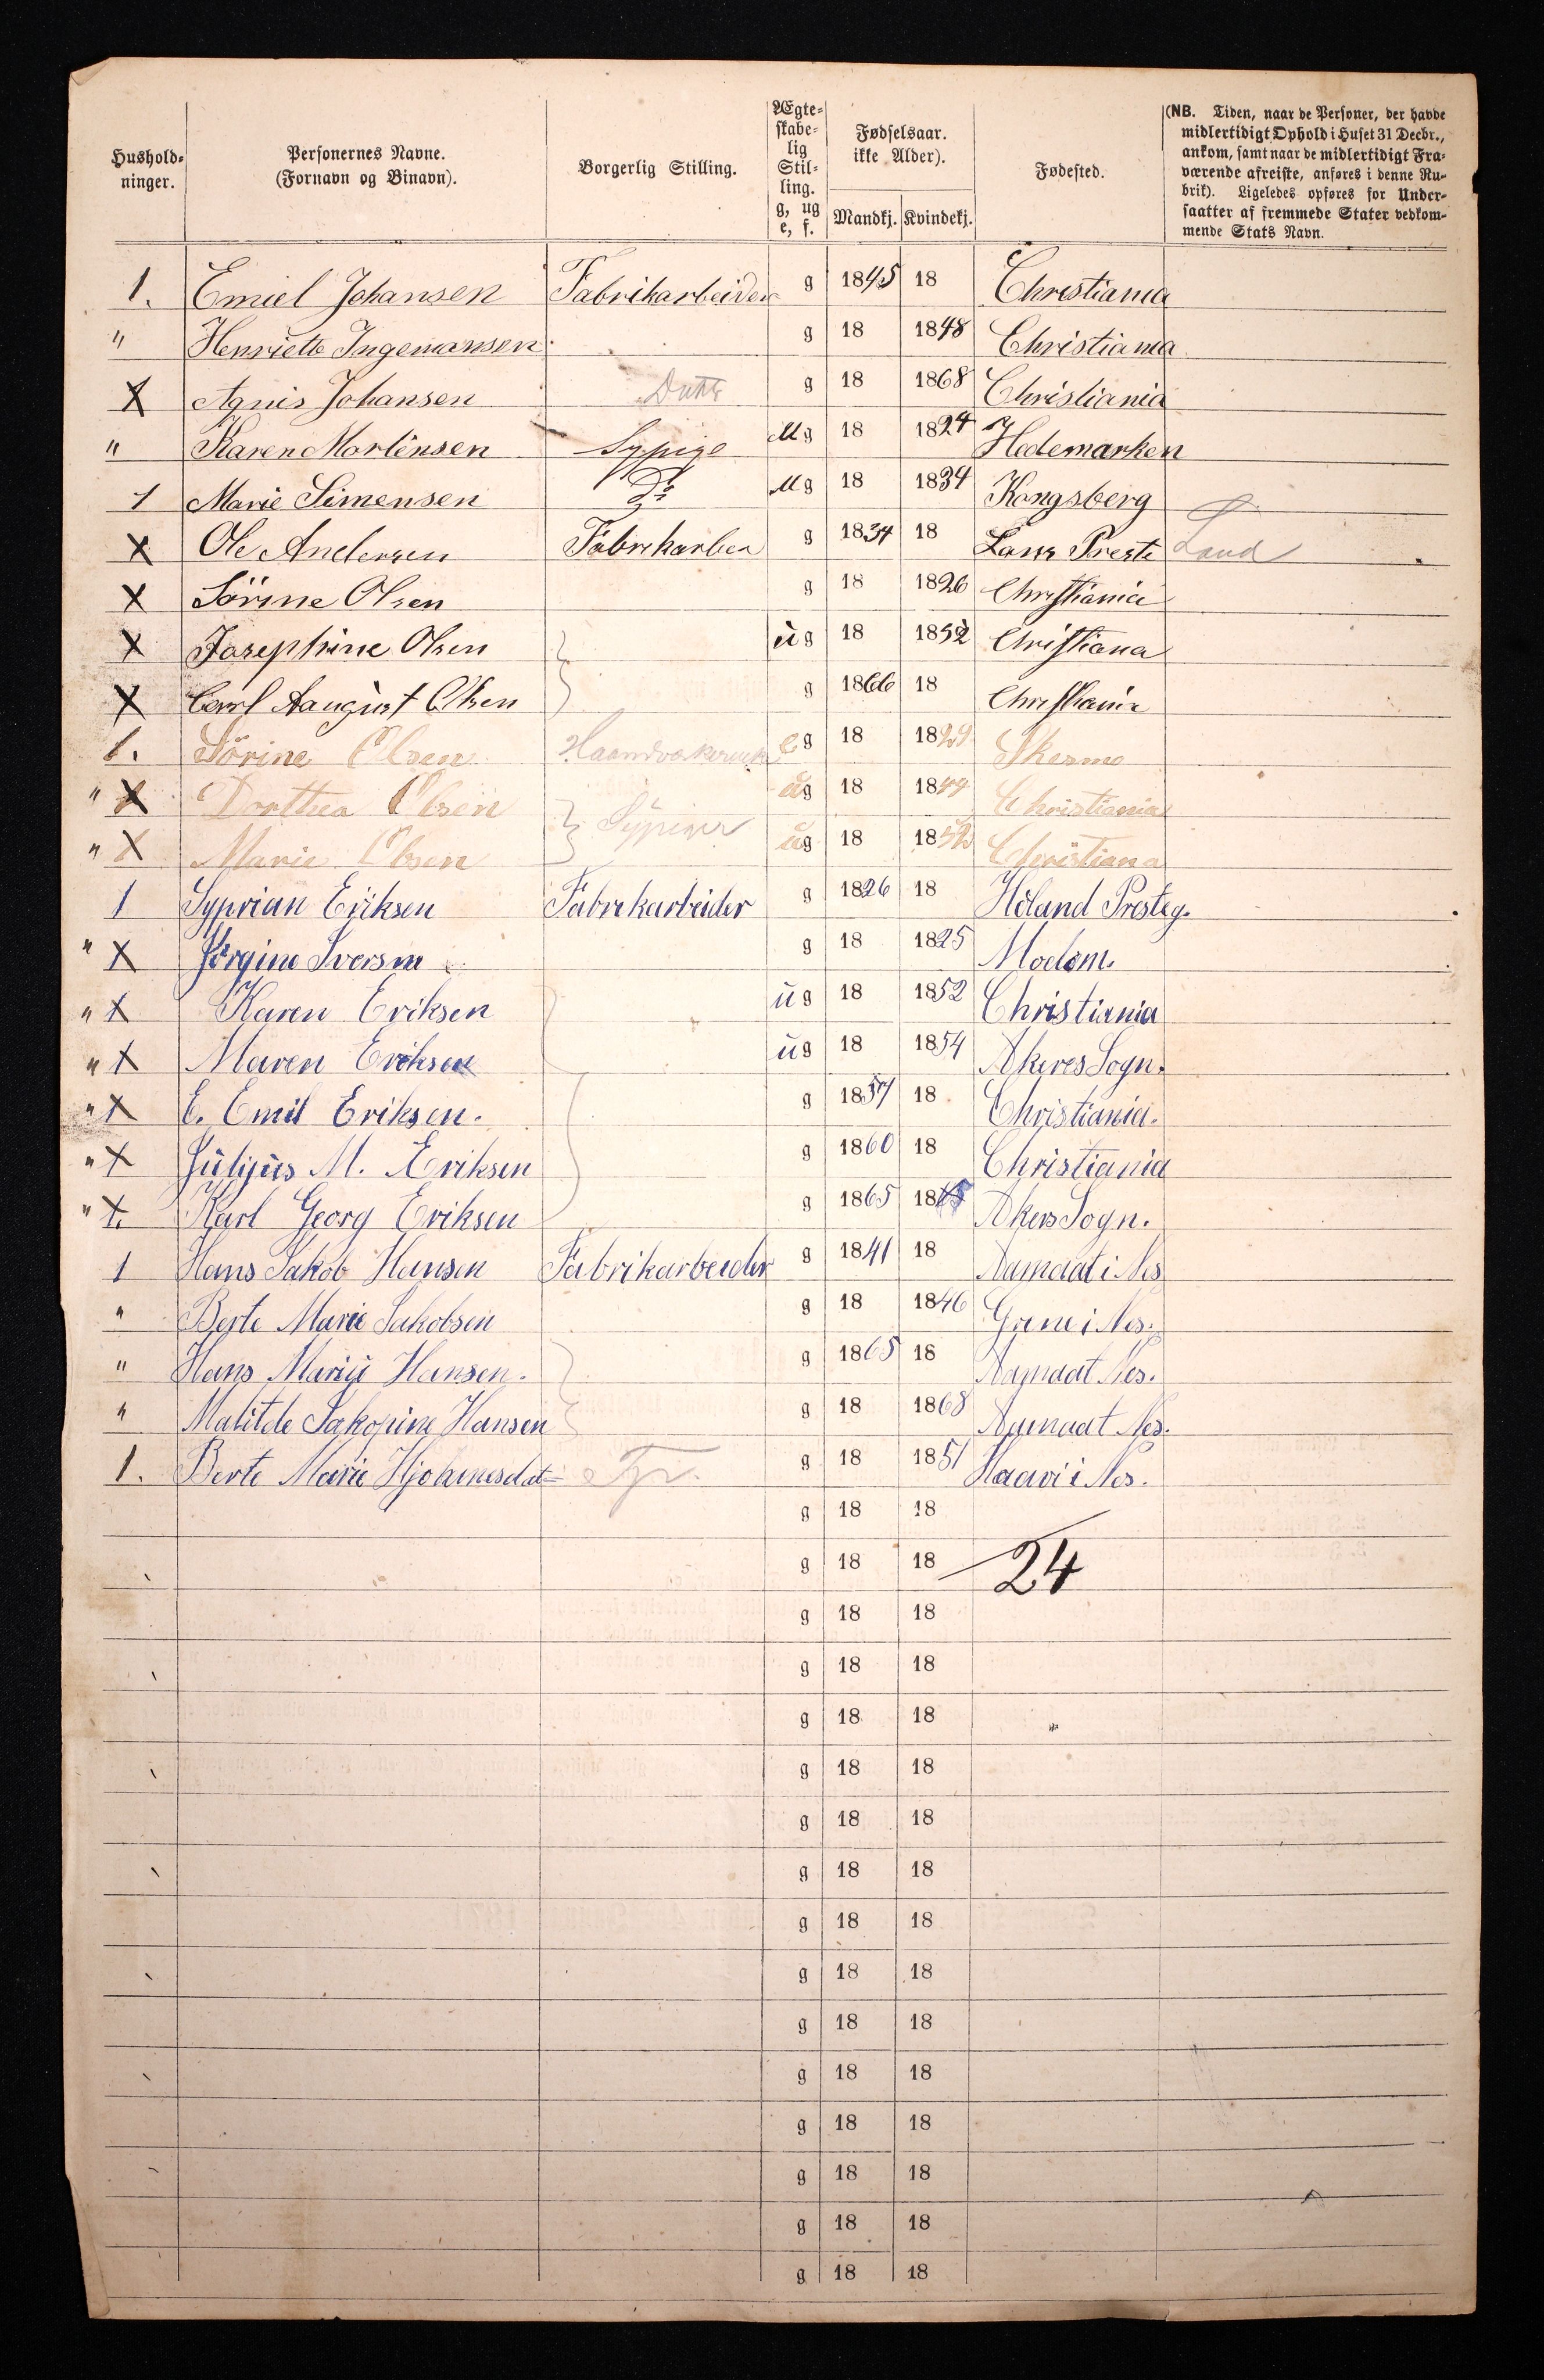 Hushold-
ninger.
Personernes Navne.
(Fornavn og Binavn).
Borgerlig Stilling.
Ægte-
skabe-
lig
Stil-
ling.
g, ug
e, f.
Fødselsaar.
ikke Alder).
Mandkj. Kvindekj.
Fødested.
(NB. Tiden, naar de Personer, der havde
midlertidigt Ophold i Huset 31 Decbr.,
ankom, samt naar de midlertidigt Fra-
værende afreiste, anføres i denne Ru-
brik). Ligeledes opføres for Under-
saatter af fremmede Stater vedkom-
mende Stats Navn.
1. Emiel Johansen Fabrikarbeider g 1845 18 Christiania
" Henriette Ingemansen g 18 1848 Christiania
X Agnis Johansen Datte g 18 1868 Christiania
" Karen Mortensen Sypige Ug 18 1824 Hedemarken
1 Marie Simensen Do Ug 18 1834 Kongsberg
X Ole Andersen Fabrikarbei g 1834 18 Preste Land
X Sörine Olsen g 18 1826 Christiania
X Josephine Olsen ug 18 1852 Christiana
X Carl Aaugust Olsen g 1866 18 Christiania
1. Sörine Olsen eg 18 1829 Skesmo
" X Dorthea Olsen ug 18 1844 Christiania
" X Marie Olsen Sypiger ug 18 1852 Christiana
1 Syprian Eriksen Fabrikarbeider g 1826 18 Höland Presteg.
" X Jörgine Iversen g 18 1825 Modom.
" X Karen Eriksen ug 18 1852 Christiania
" X Maren Eriksen ug 18 1854 Akeres Sogn.
" X E. Emil Eriksen. g 1857 18 Christiania.
" X Julijus M. Eriksen g 1860 18 Christiania
" X. Karl Georg Eriksen g 1865 18 Akers Sogn.
1 Hans Jakob Hansen Fabrikarbeider g 1841 18 Aamaat i Nes
" Berte Marie Jakobsen g 18 1846 i Nes.
" Hans Mariu Hansen. g 1865 18 Aamaat Nes.
" Malitde Jakopine Hansen g 18 1868 Aamaat Nes.
1. Berte Marie Hjohanesdat Tj. g 18 1851 i Nes.
g 18 18
g 18 18 24
g 18 18
g 18 18
g 18 18
g 18 18
g 18 18
g 18 18
g 18 18
g 18 18
g 18 18
g 18 18
g 18 18
g 18 18
g 18 18
g 18 18